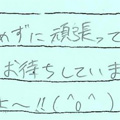 めずに頑張って
お待ちしていま
よ〜!!(^o^)